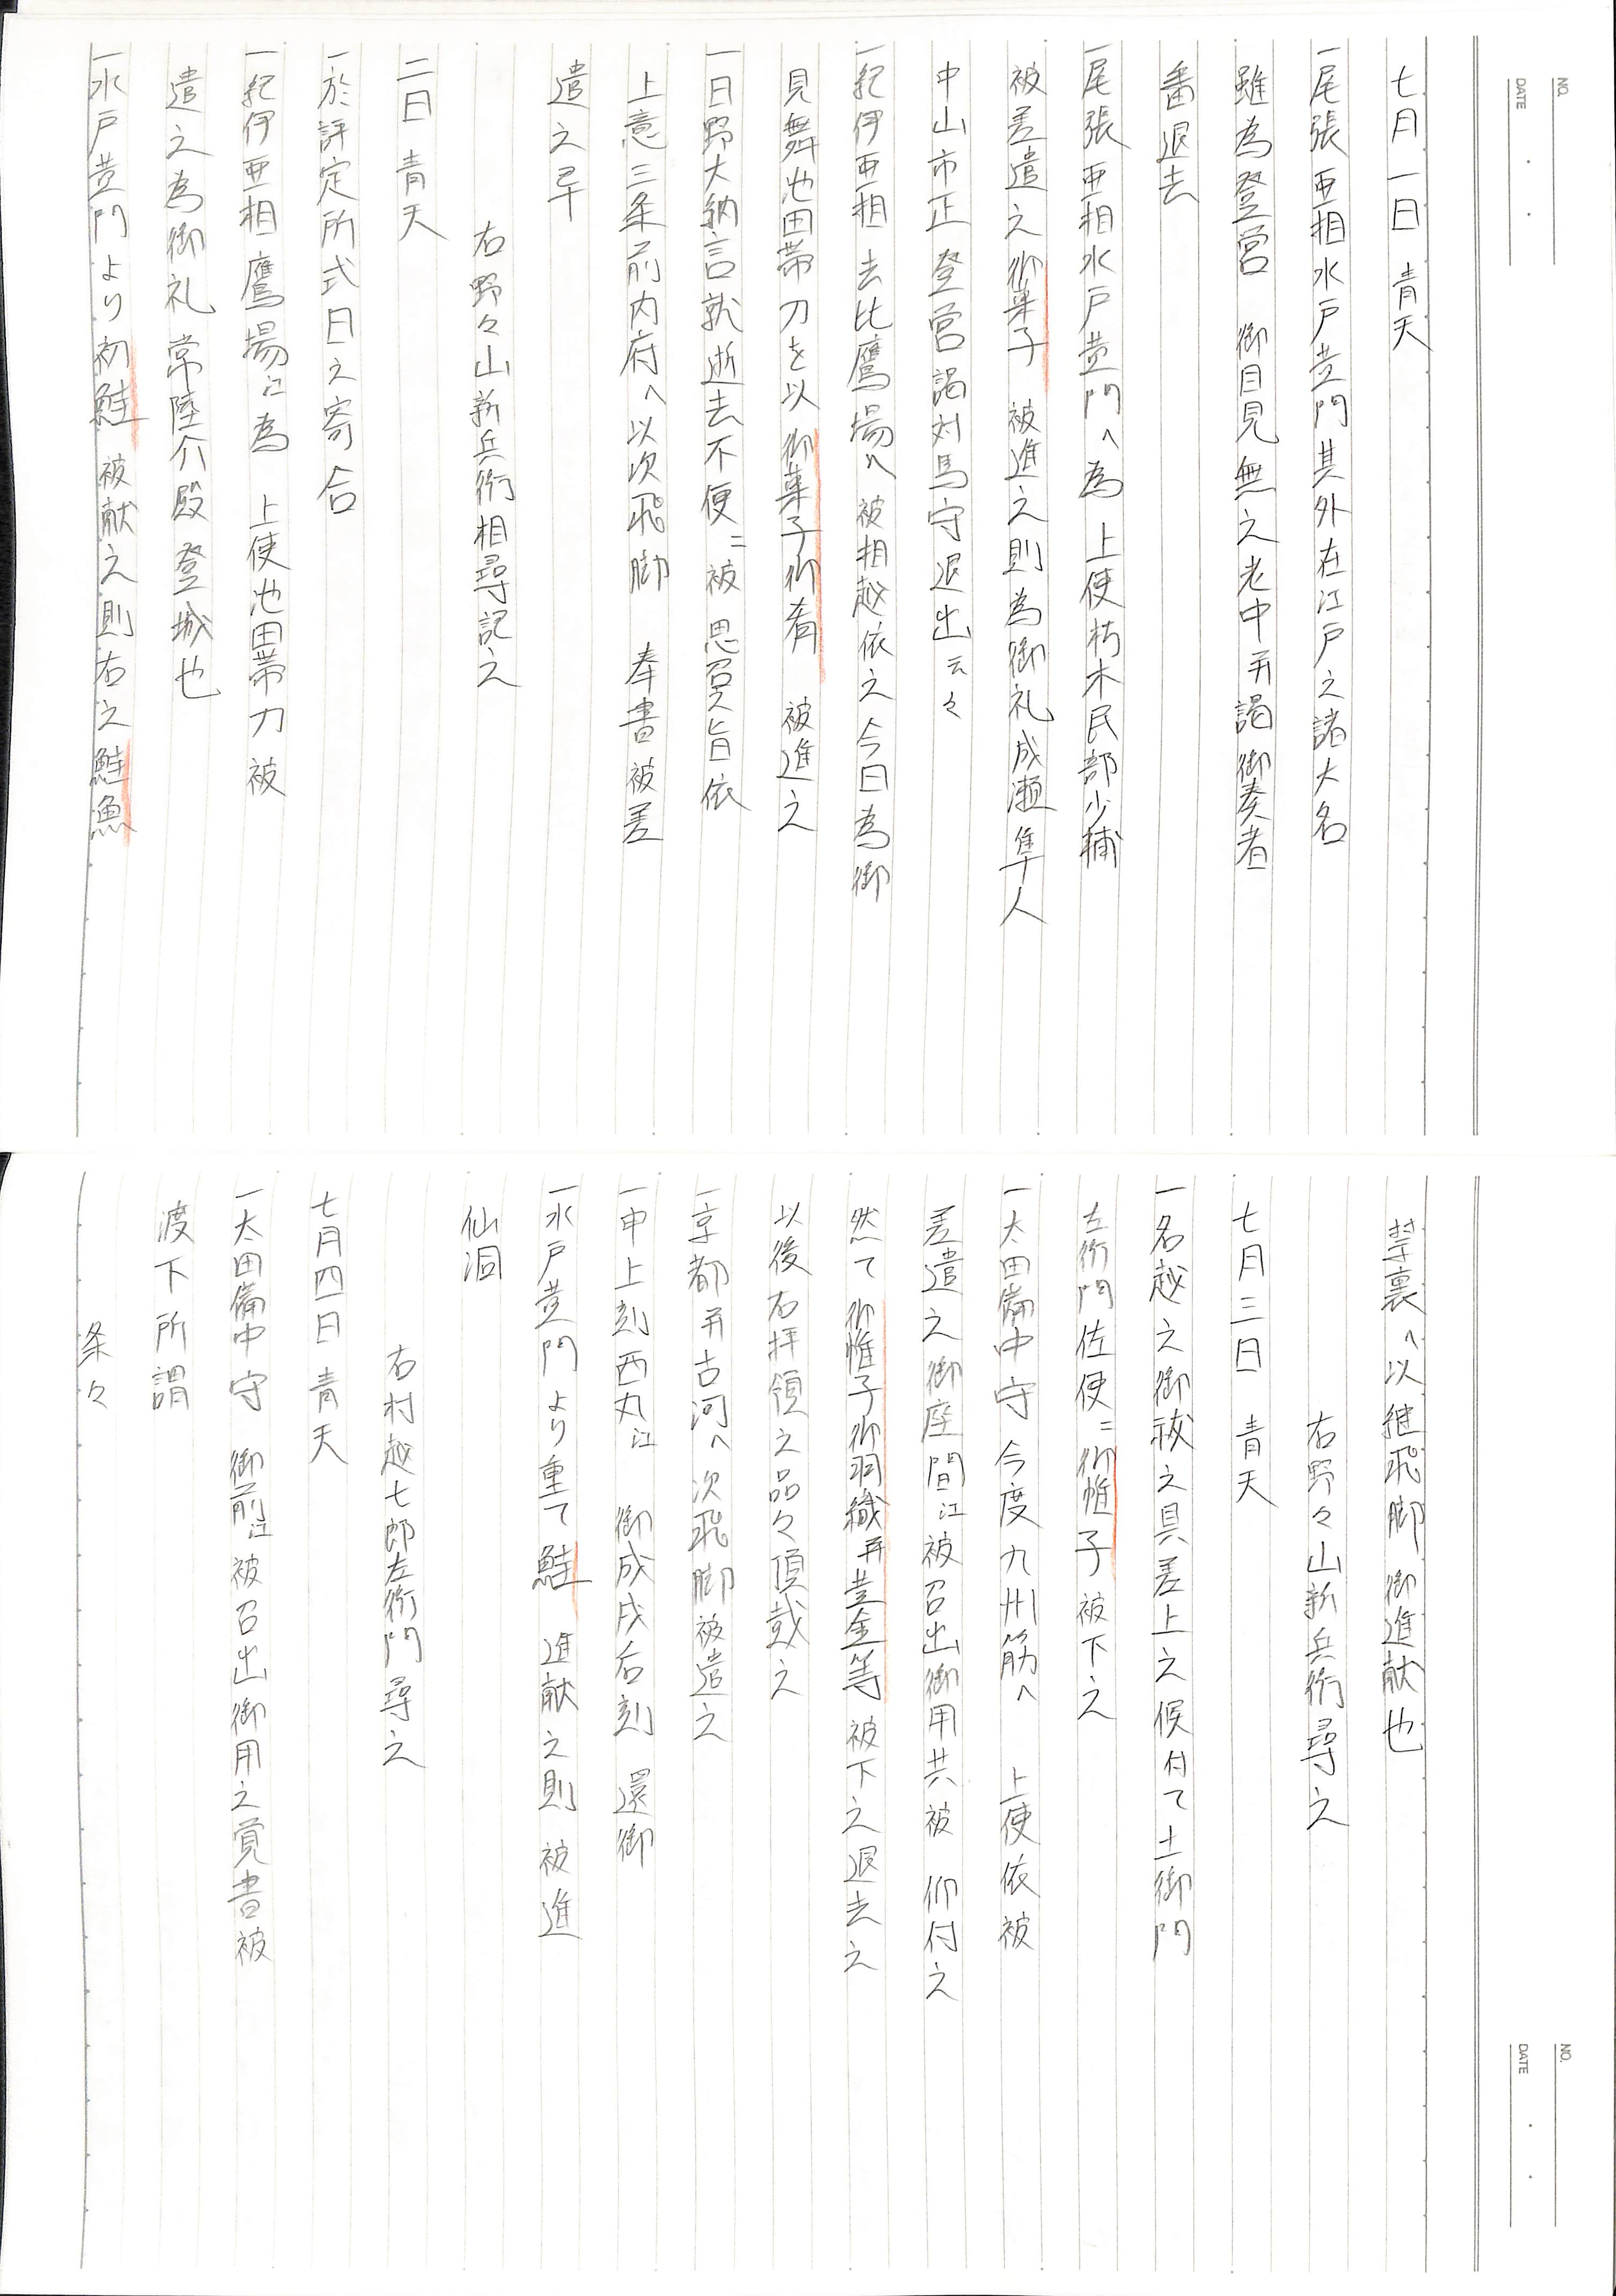 NO.
DATE
七月一日 青天
一尾張亜相水戸黄門其外在江戸之諸大名
雖為登営 御目見無之老中并謁御奏者
番退去
一尾張亜相水戸黄門へ為 上使朽木民部少輔
被差遣之御菓子 被進之則為御礼成瀬隼人
中山市正登営謁対馬守退出云々
一紀伊亜相去比鷹場へ被相越依之今日為御
見舞池田帯刀を以御菓子御肴 被進之
一日野大納言就逝去不便ニ被 思召之旨依
上意三条前内府へ以次飛脚 奉書被差
遣之早
右野々山新兵衛相尋記之
二日 青天
一於評定所式日之寄合
一紀伊亜相鷹場江為 上使池田帯刀被
遣之為御礼常陸介殿登城也
一水戸黄門より初鮭 被献之則右之鮭魚
NO.
DATE
禁裏へ以継飛脚 御進献也
右野々山新兵衛尋之
七月三日 青天
一名越之御祓之具差上之候付て土御門
左衛門佐使ニ御帷子被下之
一太田備中守今度九州筋へ 上使依被
差遣之御座間江被召出御用共被 仰付之
然て御帷子御羽織并黄金等 被下之退去之
以後右拝領之品々頂戴之
一京都并古河へ次飛脚被遣之
一申上刻西丸江 御成戌后刻 還御
一水戸黄門より重て鮭 進献之則 被進
仙洞
右村越七郎左衛門尋之
七月四日 青天
一太田備中守 御前江被召出御用之覚書被
渡下所謂
条々